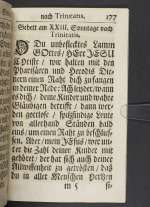 nach Trinitatis. 177
Gebett am XXIII. Sonntage nach
Trinitatis.
O Du unbeflecktes Lamm
GOttes / HErr JESU
Christe / wir halten mit den
Pharisäern und Herodis Die-
nern einen Raht dich zufangen
in deiner Rede: Ach leyder / wann
doch / deine Kinder und wahre
Gläubigen betrifft / dann wer-
den gottlose / spitzfindige Leute
von allerhand Ständen bald
eins / um einen Raht zu beschlies-
sen. Aber / mein JEsus / wer un-
ter die Zahl deiner Kinder mit
gehöret / der hat sich auch deiner
Allwissenheit zu getrösten / daß
du in aller Menschen Hertzen
m 5 si-